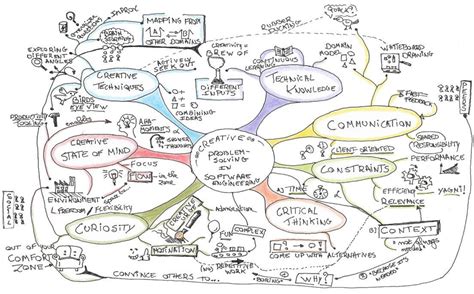 IMPROV
MAPPING FROM
OTHER DOMAINS
EXPLORING
DIFFERENT
ANGLES
BRAIN
CREATIVE
TECHNIQUES
BIRDS
EYE VIEW
ACTIVELY
SEEK OUT
CREATIVITY =
BREW OF
DIFFERENT
INPUTS
COMBINING
IDEAS
RUBBER
DUCKING
QUACK?
CONTINUOUS
LEARNING
TECHNICAL
KNOWLEDGE
DOMAIN
MODEL
WHITEBOARD
COMMUNICATION
FAST
FEEDBACK
SHARED
RESPONSIBILITY
CLIENT-ORIENTED
CONSTRAINTS
PERFORMANCE
EFFICIENCY
YAGNI
RELEVANCE
TIME
CONTEXT
CREATIVE
STATE OF MIND
AHA-
MOMENTS
SHOWER
FOCUS
FLOW
in the
zone
ENVIRONMENT
FREEDOM
FLEXIBILITY
SOCIAL
CREATIVE
PROBLEM-
SOLVING
IN
SOFTWARE
ENGINEERING
CURIOSITY
CREATIVE
WORK
FUN
COMPLEX
MOTIVATION
REPETITIVE
WORK
CRITICAL
THINKING
COME UP WITH ALTERNATIVES
OUT OF YOUR
COMFORT
ZONE
CONVINCE OTHERS TO...
WHY?